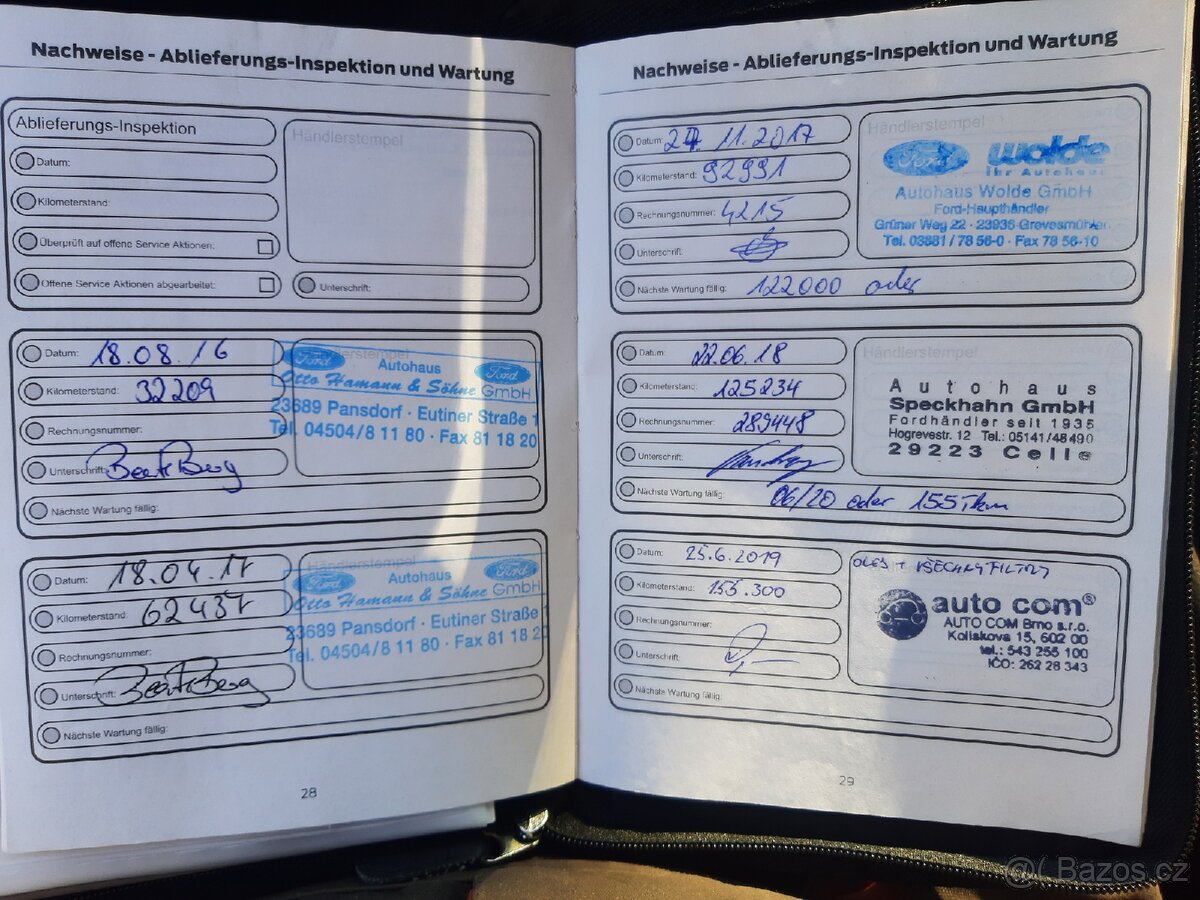 Nachweise - Ablieferungs-Inspektion und Wartung
Ablieferungs-Inspektion
Händlerstempel
Datum:
Kilometerstand:
Überprüft auf offene Service Aktionen:
Offene Service Aktionen abgearbeitet:
Unterschrift:
Datum: 18.08.16
Kilometerstand: 32209
Rechnungsnummer:
Unterschrift:
Nächste Wartung fällig:
Händlerstempel
Ford Autohaus Ford
Otto Hamann & Söhne GmbH
23689 Pansdorf · Eutiner Straße 1
Tel. 04504/8 11 80 · Fax 81 18 20
Datum: 18.04.17
Kilometerstand: 62437
Rechnungsnummer:
Unterschrift:
Nächste Wartung fällig:
Händlerstempel
Ford Autohaus Ford
Otto Hamann & Söhne GmbH
23689 Pansdorf · Eutiner Straße
Tel. 04504/8 11 80 · Fax 81 18 20
28
Nachweise - Ablieferungs-Inspektion und Wartung
Datum: 27.11.2017
Kilometerstand: 92991
Rechnungsnummer: 4215
Unterschrift:
Nächste Wartung fällig: 122000 oder
Händlerstempel
Ford Wolde
Ihr Autohaus
Autohaus Wolde GmbH
Ford-Haupthändler
Grüner Weg 22 · 23936 Grevesmühlen
Tel. 03881 / 78 56-0 · Fax 78 56-10
Datum: 22.06.18
Kilometerstand: 125234
Rechnungsnummer: 289448
Unterschrift:
Nächste Wartung fällig: 06/20 oder 155Tkm
Händlerstempel
Autohaus
Speckhahn GmbH
Fordhändler seit 1935
Hogrevestr. 12 Tel.: 05141/48490
29223 Celle
Datum: 25.6.2019
Kilometerstand: 155.300
Rechnungsnummer:
Unterschrift:
Nächste Wartung fällig:
OLEJ + VŠECHNY FILTRY
auto com®
AUTO COM Brno s.r.o.
Koliskova 15, 602 00
tel.: 543 255 100
IČO: 262 28 343
29
@( Bazos.cz